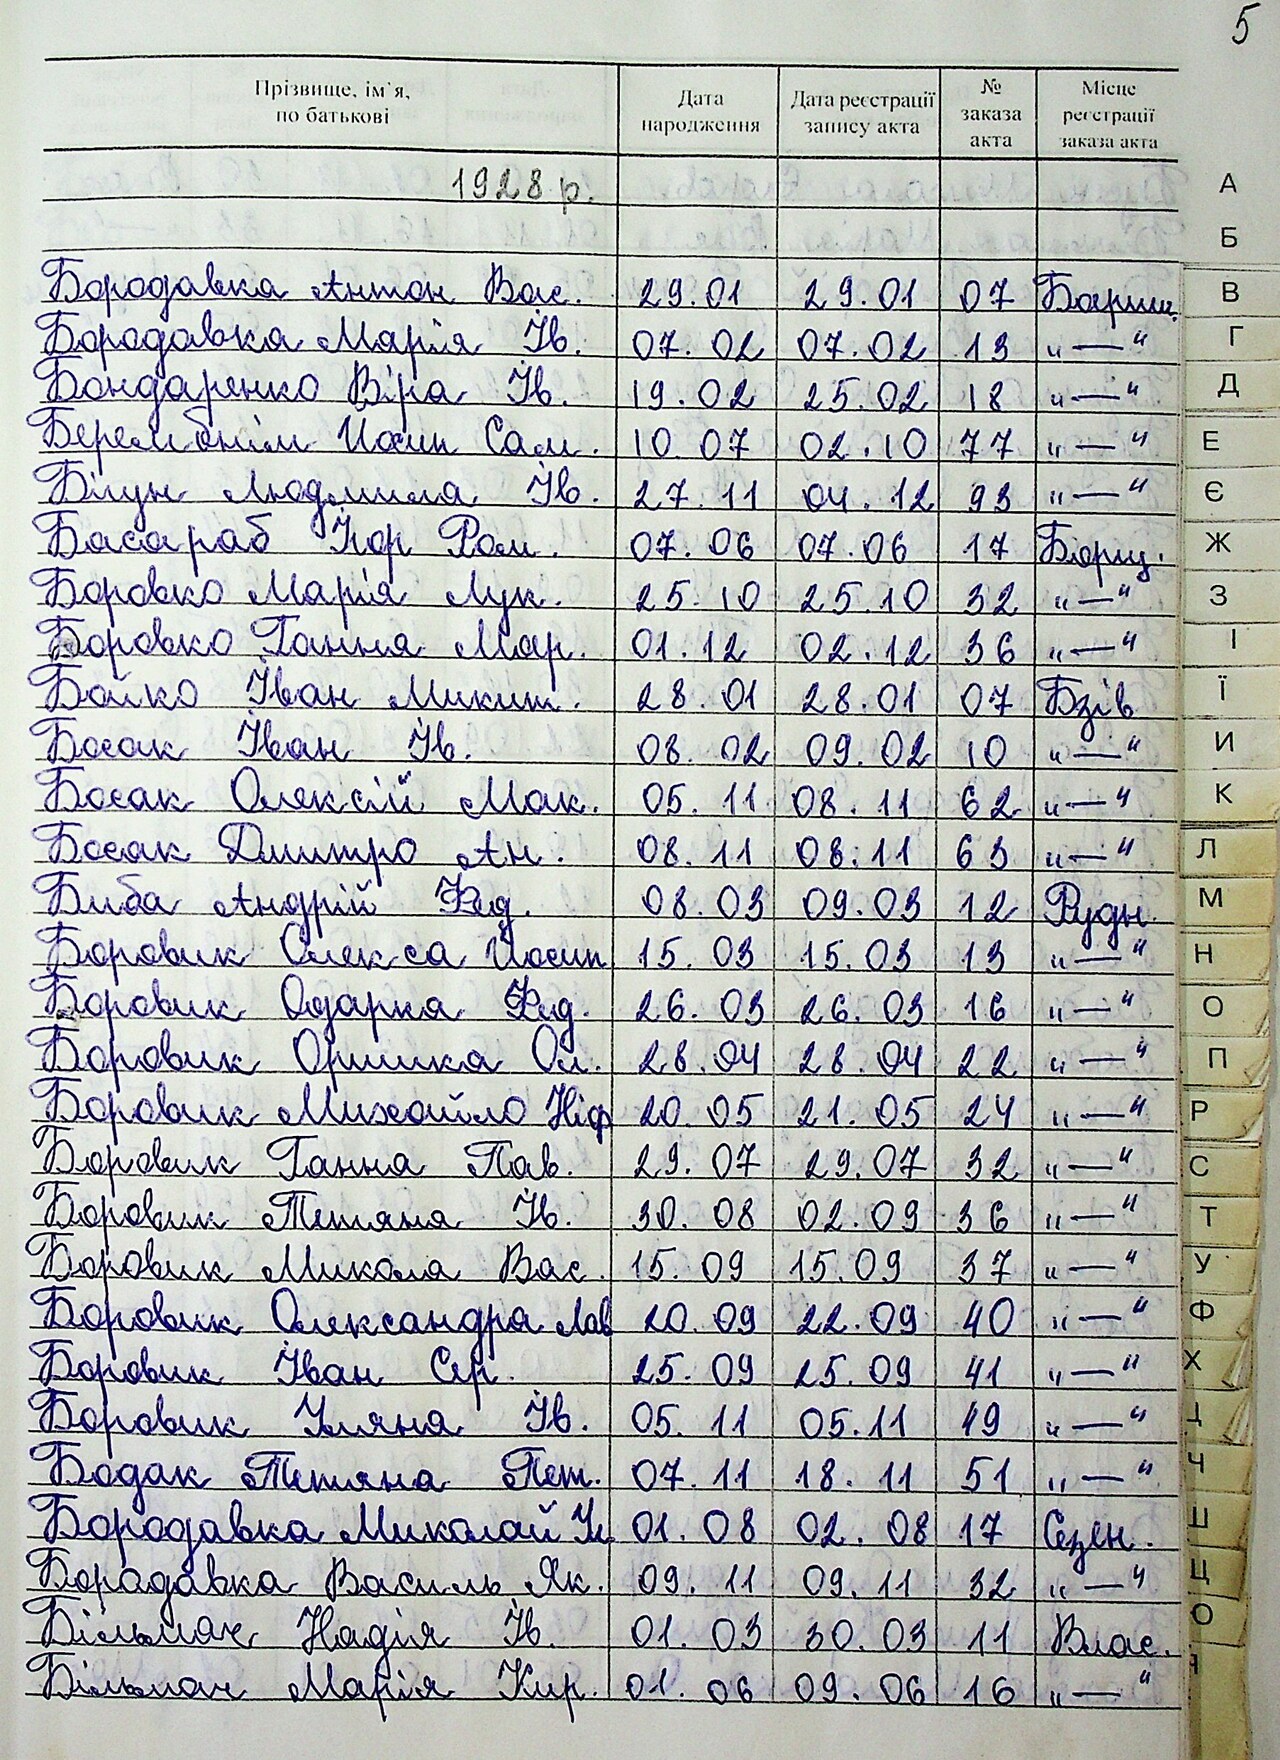 5
Прізвище, ім`я, по батькові Дата народження Дата реєстрації запису акта № заказа акта Місце реєстрації заказа акта
1928 р.
А
Б
Бородавка Антон Вас. 29.01 29.01 07 Бориш. В
Бородавка Марія Ів. 07.02 07.02 13 „—“ Г
Бондаренко Віра Ів. 19.02 25.02 18 „—“ Д
Йосип Сам. 10.07 02.10 77 „—“ Е
Білун Людмила Ів. 27.11 04.12 93 „—“ Є
Басараб Ігор Ром. 07.06 07.06 17 Борщ. Ж
Боровко Марія Лук. 25.10 25.10 32 „—“ З
Боровко Ганна Мар. 01.12 02.12 36 „—“ І
Бойко Іван Микит. 28.01 28.01 07 Бзів Ї
Босак Іван Ів. 08.02 09.02 10 „—“ И
Босак Олексій Мак. 05.11 08.11 62 „—“ К
Босак Дмитро Ан. 08.11 08.11 63 „—“ Л
Биба Андрій Фед. 08.03 09.03 12 Рудн. М
Боровик Олекса Йосип 15.03 15.03 13 „—“ Н
Боровик Одарка Фед. 26.03 26.03 16 „—“ О
Боровик Оришка Ол. 28.04 28.04 22 „—“ П
Боровик Михайло Ніф 20.05 21.05 24 „—“ Р
Боровик Ганна Пав. 29.07 29.07 32 „—“ С
Боровик Тетяна Ів. 30.08 02.09 36 „—“ Т
Боровик Микола Вас. 15.09 15.09 37 „—“ У
Боровик Олександра Лав 20.09 22.09 40 „—“ Ф
Боровик Іван Сер. 25.09 25.09 41 „—“ Х
Боровик Уляна Ів. 05.11 05.11 49 „—“
Бодак Тетяна Пет. 07.11 18.11 51 „—“ Ч
Бородавка Миколай 01.08 02.08 17 Сезен. Ш
Борадавка Василь Як. 09.11 09.11 32 „—“ Щ
Більмач Надія Ів. 01.03 30.03 11 Влас. Ю
Більмач Марія Кир. 01.06 09.06 16 „—“ Я